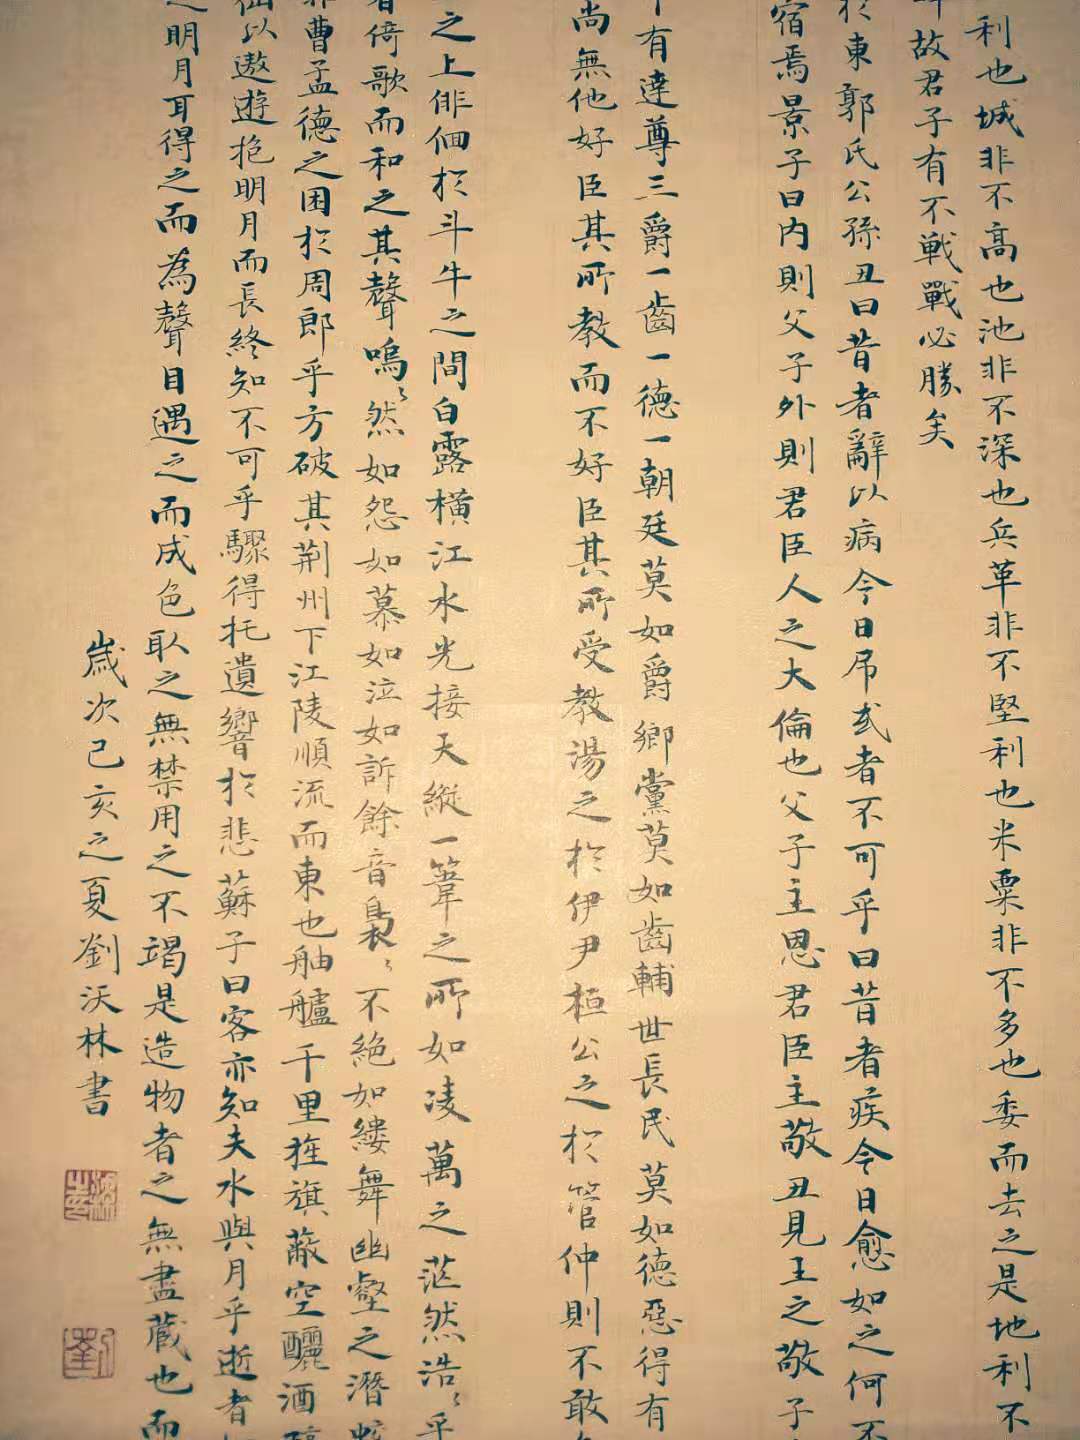 利也城非不高也池非不深也兵革非不堅利也米粟非不多也委而去之是地利不
故君子有不戦戰必勝矣
於東郭氏公孫丑曰昔者辭以病今日吊或者不可乎曰昔者疾今日愈如之何不
宿焉景子曰内則父子外則君臣人之大倫也父子主恩君臣主敬丑見王之敬子
有達尊三爵一齒一德一朝廷莫如爵鄉黨莫如齒輔世長民莫如德惡得有
尚無他好臣其所教而不好臣其所受教湯之於伊尹桓公之於管仲則不敢
之上徘徊於斗牛之間白露橫江水光接天縱一葦之所如凌萬之茫然浩〻乎
者倚歌而和之其聲嗚〻然如怨如慕如泣如訴餘音裊〻不絕如縷舞幽壑之潛蛟
非曹孟德之困於周郎乎方破其荆州下江陵順流而東也舳艫千里旌旗蔽空釃酒
仙以遨遊抱明月而長終知不可乎驟得托遺響於悲蘇子曰客亦知夫水與月乎逝者
之明月耳得之而為聲目遇之而成色取之無禁用之不竭是造物者之無盡藏也而
歲次己亥之夏劉沃林書